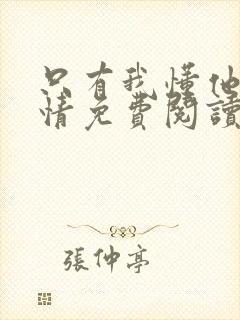 只有我懂他
情免費閱讀
張仲亭